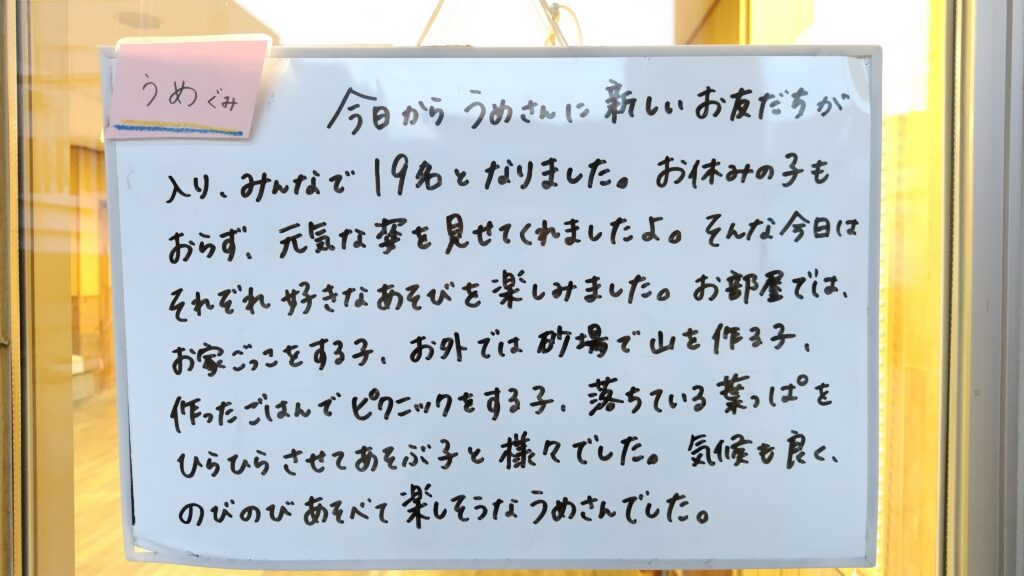 うめぐみ
今日から うめさんに 新しい お友だちが
入り、みんなで 19名と なりました。お休みの子も
おらず、元気な姿を見せてくれましたよ。そんな今日は
それぞれ好きなあそびを楽しみました。お部屋では、
お家ごっこをする子、お外では砂場で山を作る子、
作ったごはんでピクニックをする子、落ちている葉っぱを
ひらひらさせてあそぶ子と様々でした。気候も良く、
のびのびあそべて楽しそうなうめさんでした。